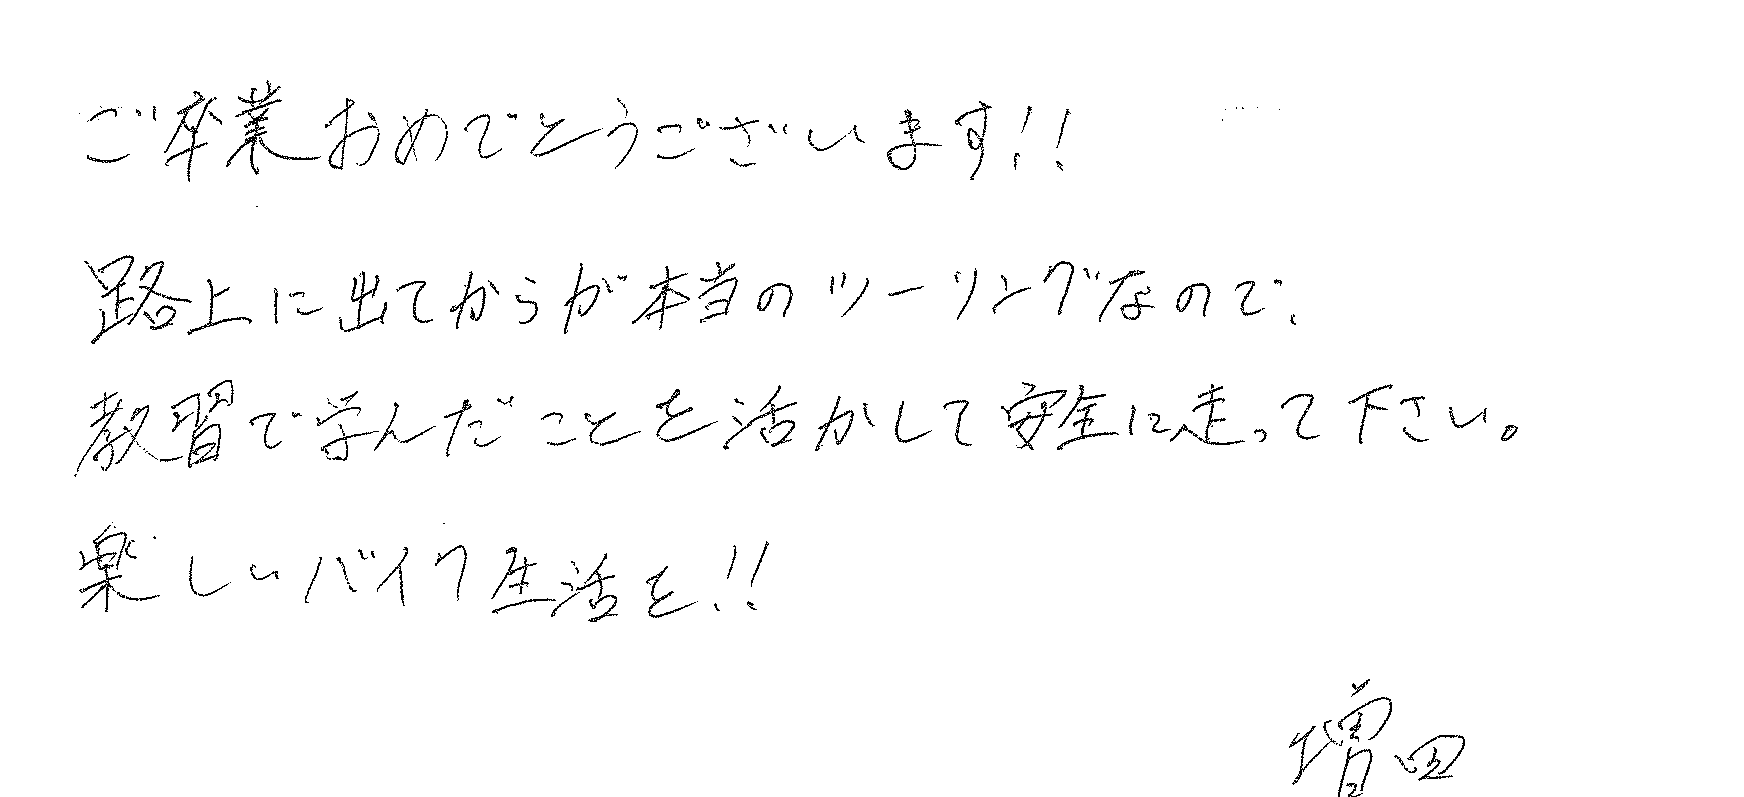 ご卒業おめでとうございます!!
路上に出てからが本当のツーリングなので、
教習で学んだことを活かして安全に走って下さい。
楽しいバイク生活を!!
増田